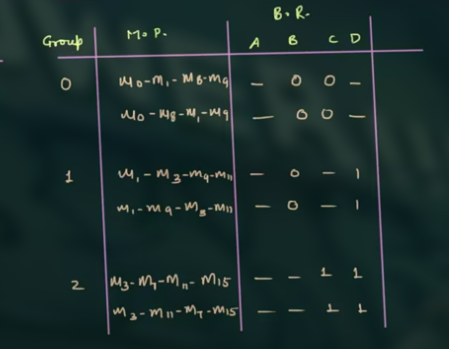 B.R.
Group M.P. A B C D
0 m0-m1-m8-m9 — 0 0 —
m0-m8-m1-m9 — 0 0 —
1 m1-m3-m9-m11 — 0 — 1
m1-m9-m3-m11 — 0 — 1
2 m3-m7-m11-m15 — — 1 1
m3-m11-m7-m15 — — 1 1